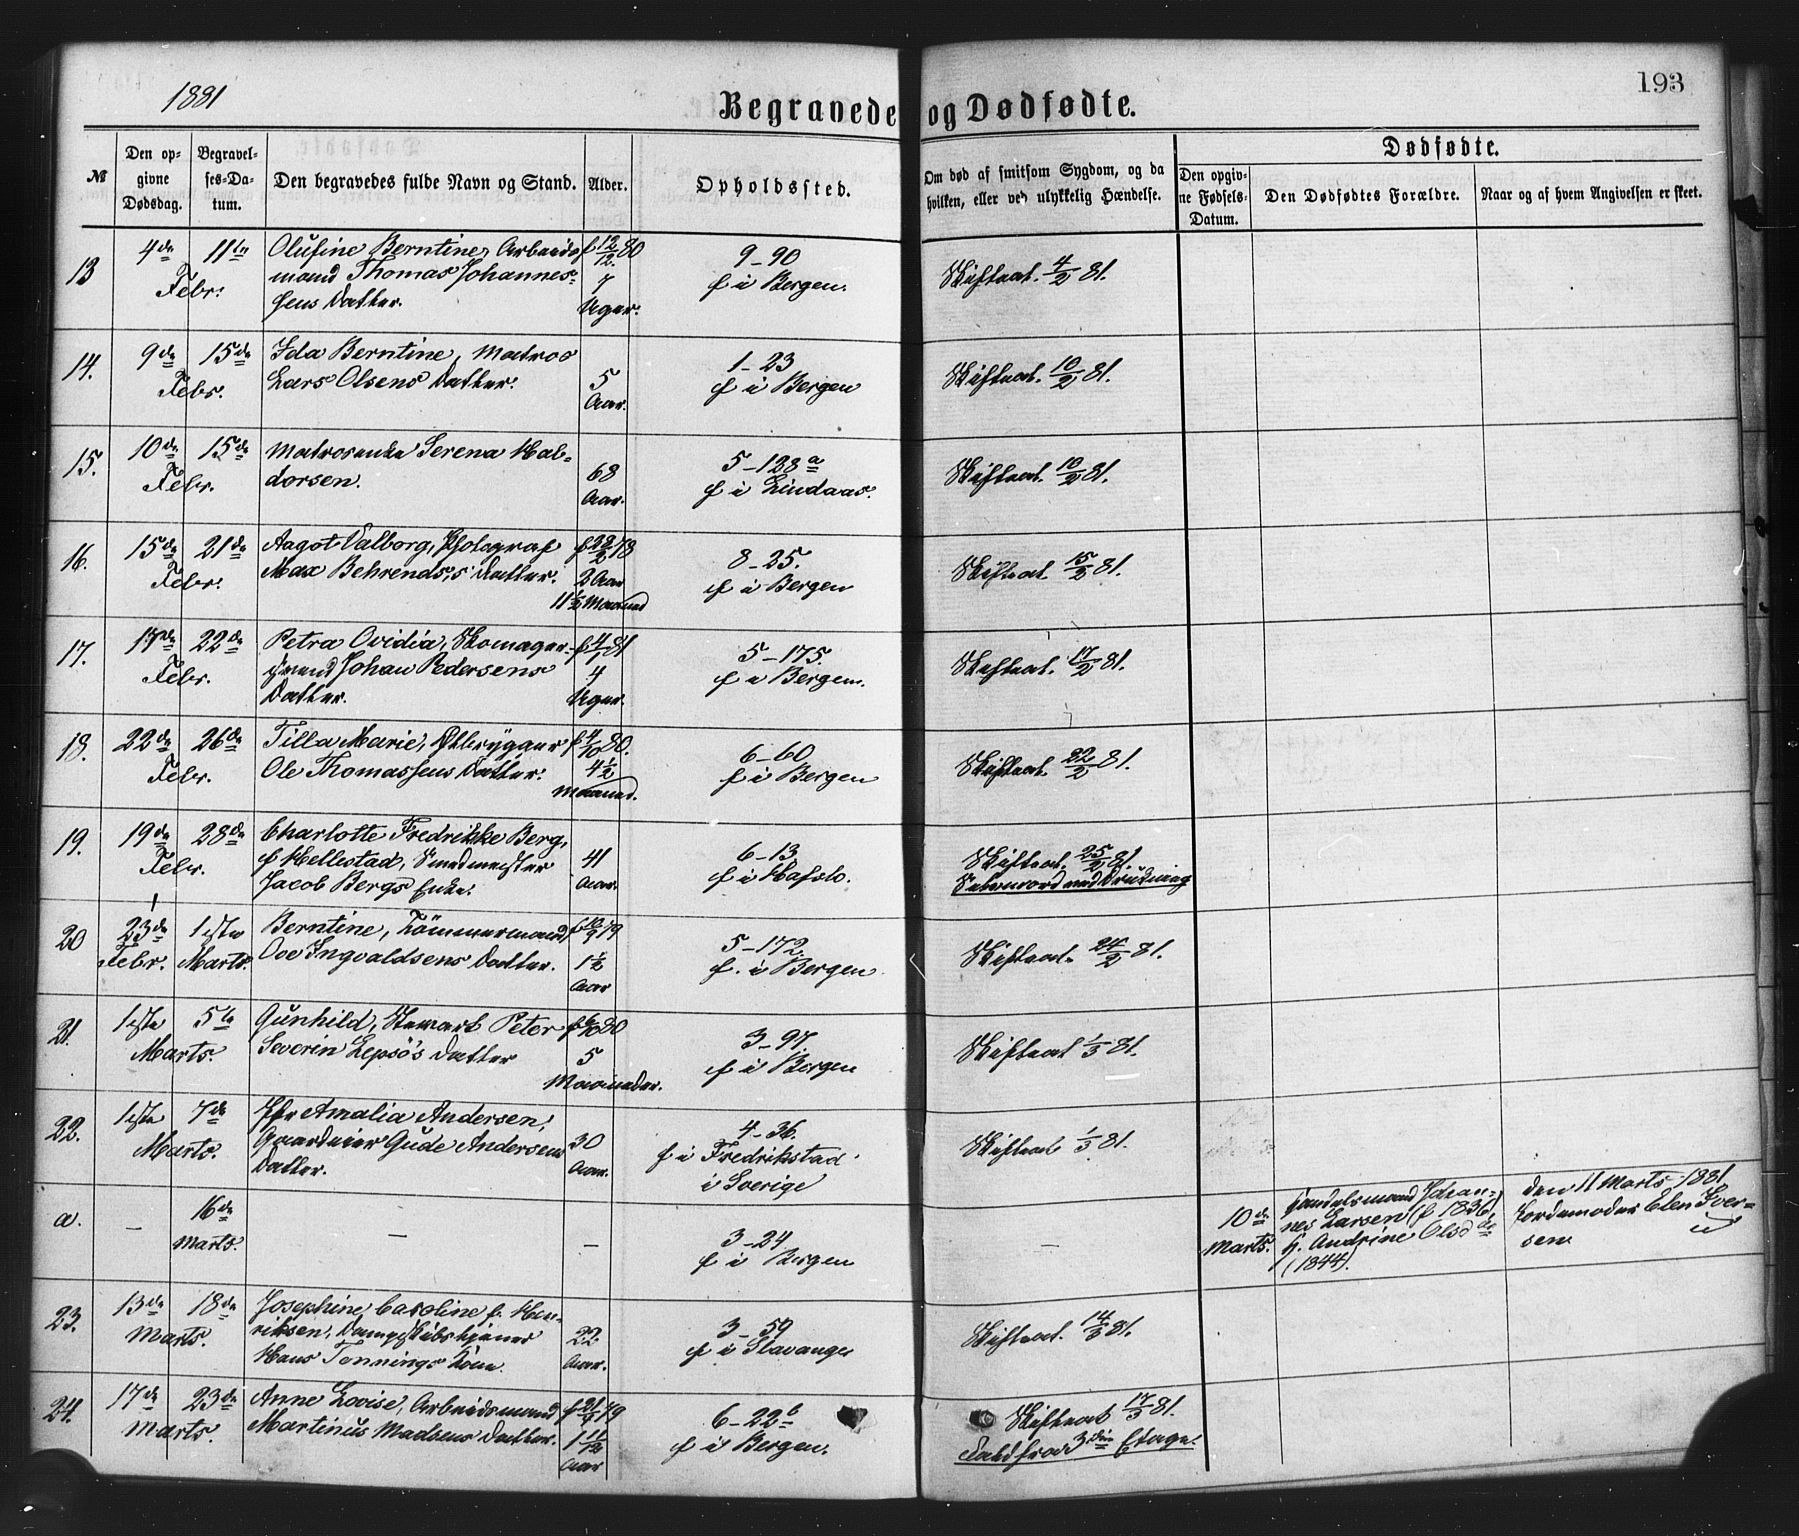 1881
193
Begravede og Dødfødte.
№
Den opgivne Dødsdag.
Begravelses-Datum.
Den begravedes fulde Navn og Stand.
Alder.
Opholdssted.
Om død af smitsom Sygdom, og da hvilken, eller ved ulykkelig Hændelse.
Dødfødte.
Den opgivne Fødsels-Datum.
Den Dødfødtes Forældre.
Naar og af hvem Angivelsen er skeet.
13 4de 11te Olufine Berntine, Arbeids- f 12/12 80 9-90
Febr. mand Thomas Johannes- 7 f i Bergen. Skifteat. 4/2 81.
sens Datter. Uger.
14. 9de 15de Ida Berntine, Matros 1-23
Febr. Lars Olsens Datter. 5 f i Bergen Skifteat. 10/2 81.
Aar.
15. 10de 15de Matrosenke Serena Hal- 5-128a
Febr. dorsen. 68 f i Lindaas. Skifteat. 10/2 81.
Aar.
16. 15de 21de Aagot Valborg, Photograf f 28/2 78 8-25.
Febr. Max Behrends,s Datter. 2 Aar f i Bergen Skifteat 15/2 81.
11 1/2 Maaned
17. 17de 22de Petra Ovidia, Skomager- f 4/1 81 5-175.
Febr. svend Johan Pedersens 4 f i Bergen. Skifteat. 17/2 81.
Datter. Uger.
18. 22de 26de Tilla Marie, Ølbrygger f 4/10 80. 6-60
Febr. Ole Thomassens Datter. 4 1/2 f i Bergen Skifteat. 22/2 81.
Maaned.
19. 19de 28de Charlotte Fredrikke Berg, 6-13
Febr. f Hellestad, Smedmester 41 f i Hafslo. Skifteat. 25/2 81.
Jacob Bergs Enke. Aar. Selvmord ved Drukning
20 23de 1ste Berntine, Tömmermand f 10/9 79 5-172
Febr. Marts. Ove Ingvaldsens Datter. 1 1/2 f. i Bergen Skifteat. 24/2 81.
Aar
21. 1ste 5te Gunhild, Stewart Peter f 6/10 80 3-97.
Marts. Severin Lepsö's Datter 5 f i Bergen Skifteat 1/3 81.
Maaneder.
22. 1ste 7de Jfr Amalia Andersen, 4-36.
Marts. Gaardeier Gude Andersens 30 f i Fredrikstad Skifteat 1/3 81.
Datter. Aar. i Sverige
a. – 16de – – 3-24 – 10de Handelsmand Johan- den 11 Marts 1881
Marts. f i Bergen Marts. nes Larsen (f 1836) Jordemoder Elen Iver-
H. Andrine Olsd sen
(1844).
23. 13de 18de Josephine Caroline f. Hen- 3-59
Marts. riksen, Dampskibskjener 22 f i Stavanger Skifteat. 14/3 81.
Hans Tennings Kone. Aar.
24. 17de 23de Anne Lovise, Arbeidsmand f 21/4 79 6-22b
Marts. Martinus Madsens Datter. 1 11/12 f i Bergen. Skifteat 17/3 81.
Aar Fald fra 3die Etage.